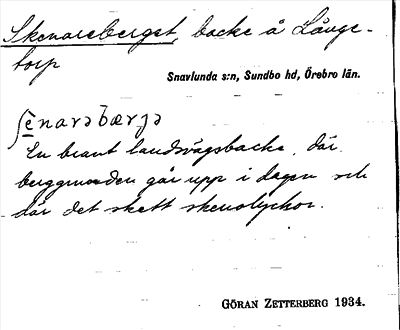 Skenareberget, backe å Långe-
torp
Snavlunda s:n, Sundbo hd, Örebro län.
ʃènarəbærjə
En brant landsvägsbacke, där
berggrunden går upp i dagen och
där det skett skenolyckor.
GÖRAN ZETTERBERG 1934.